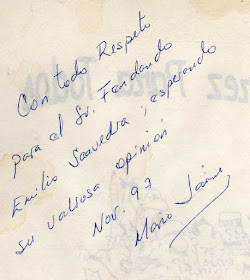 Con todo Respeto
para el Sr. Fernando
Emilio Saavedra; esperando
su valiosa opinión
Nov. 97
Mario Jaime